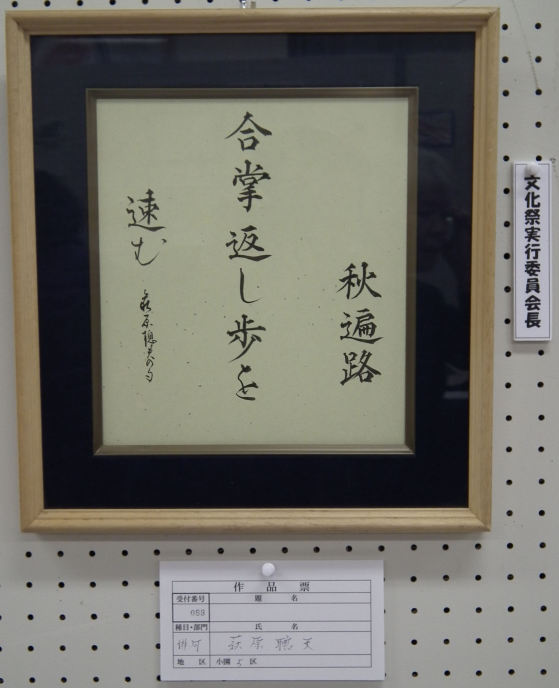 秋遍路
合掌返し歩を
速む
萩原聴天の句
文化祭実行委員会長
作品票
受付番号 題名
088
種目・部門 氏名
俳句 萩原聴天
地区 小園5区